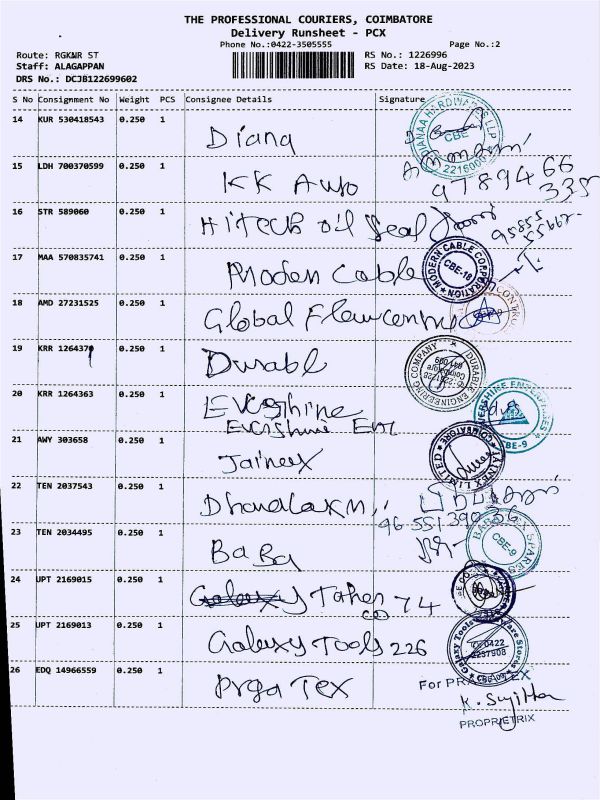 THE PROFESSIONAL COURIERS, COIMBATORE
Delivery Runsheet - PCX
Phone No.:0422-3505555 Page No.:2
Route: RGKWR ST RS No.: 1226996
Staff: ALAGAPPAN RS Date: 18-Aug-2023
DRS No.: DCJB122699602
S No Consignment No Weight PCS Consignee Details Signature
14 KUR 530418543 0.250 1 Diana
DIANAA HARDWARES LLP CBE 2216000
15 LDH 700370599 0.250 1 KK Auto
9789466
335
16 STR 589060 0.250 1 Hitech oil Seal
95855
55667
17 MAA 570835741 0.250 1 Moden Cable
MODERN CABLE CORPORATION CBE-18
18 AMD 27231525 0.250 1 Global Flowcontrol
19 KRR 1264379 0.250 1 Durabl
DURABLE ENGINEERING COMPANY
20 KRR 1264363 0.250 1 Evershine
Evershine Ent
EVERSHINE ENTERPRISES CBE-9
21 AWY 303658 0.250 1 Jainex
JAINEX LIMITED COIMBATORE
22 TEN 2037543 0.250 1 Dhanalaxmi
96 551 390 36
23 TEN 2034495 0.250 1 BaBa
SPARES CBE-9
24 UPT 2169015 0.250 1 Taher
co 74
25 UPT 2169013 0.250 1 Galaxy Tools 226
Galaxy Tools Hardware Stores 0422 2257908 CBE-09
26 EDQ 14966559 0.250 1 Prga Tex
For PRAGA TEX
K. Sujitha
PROPRIETRIX